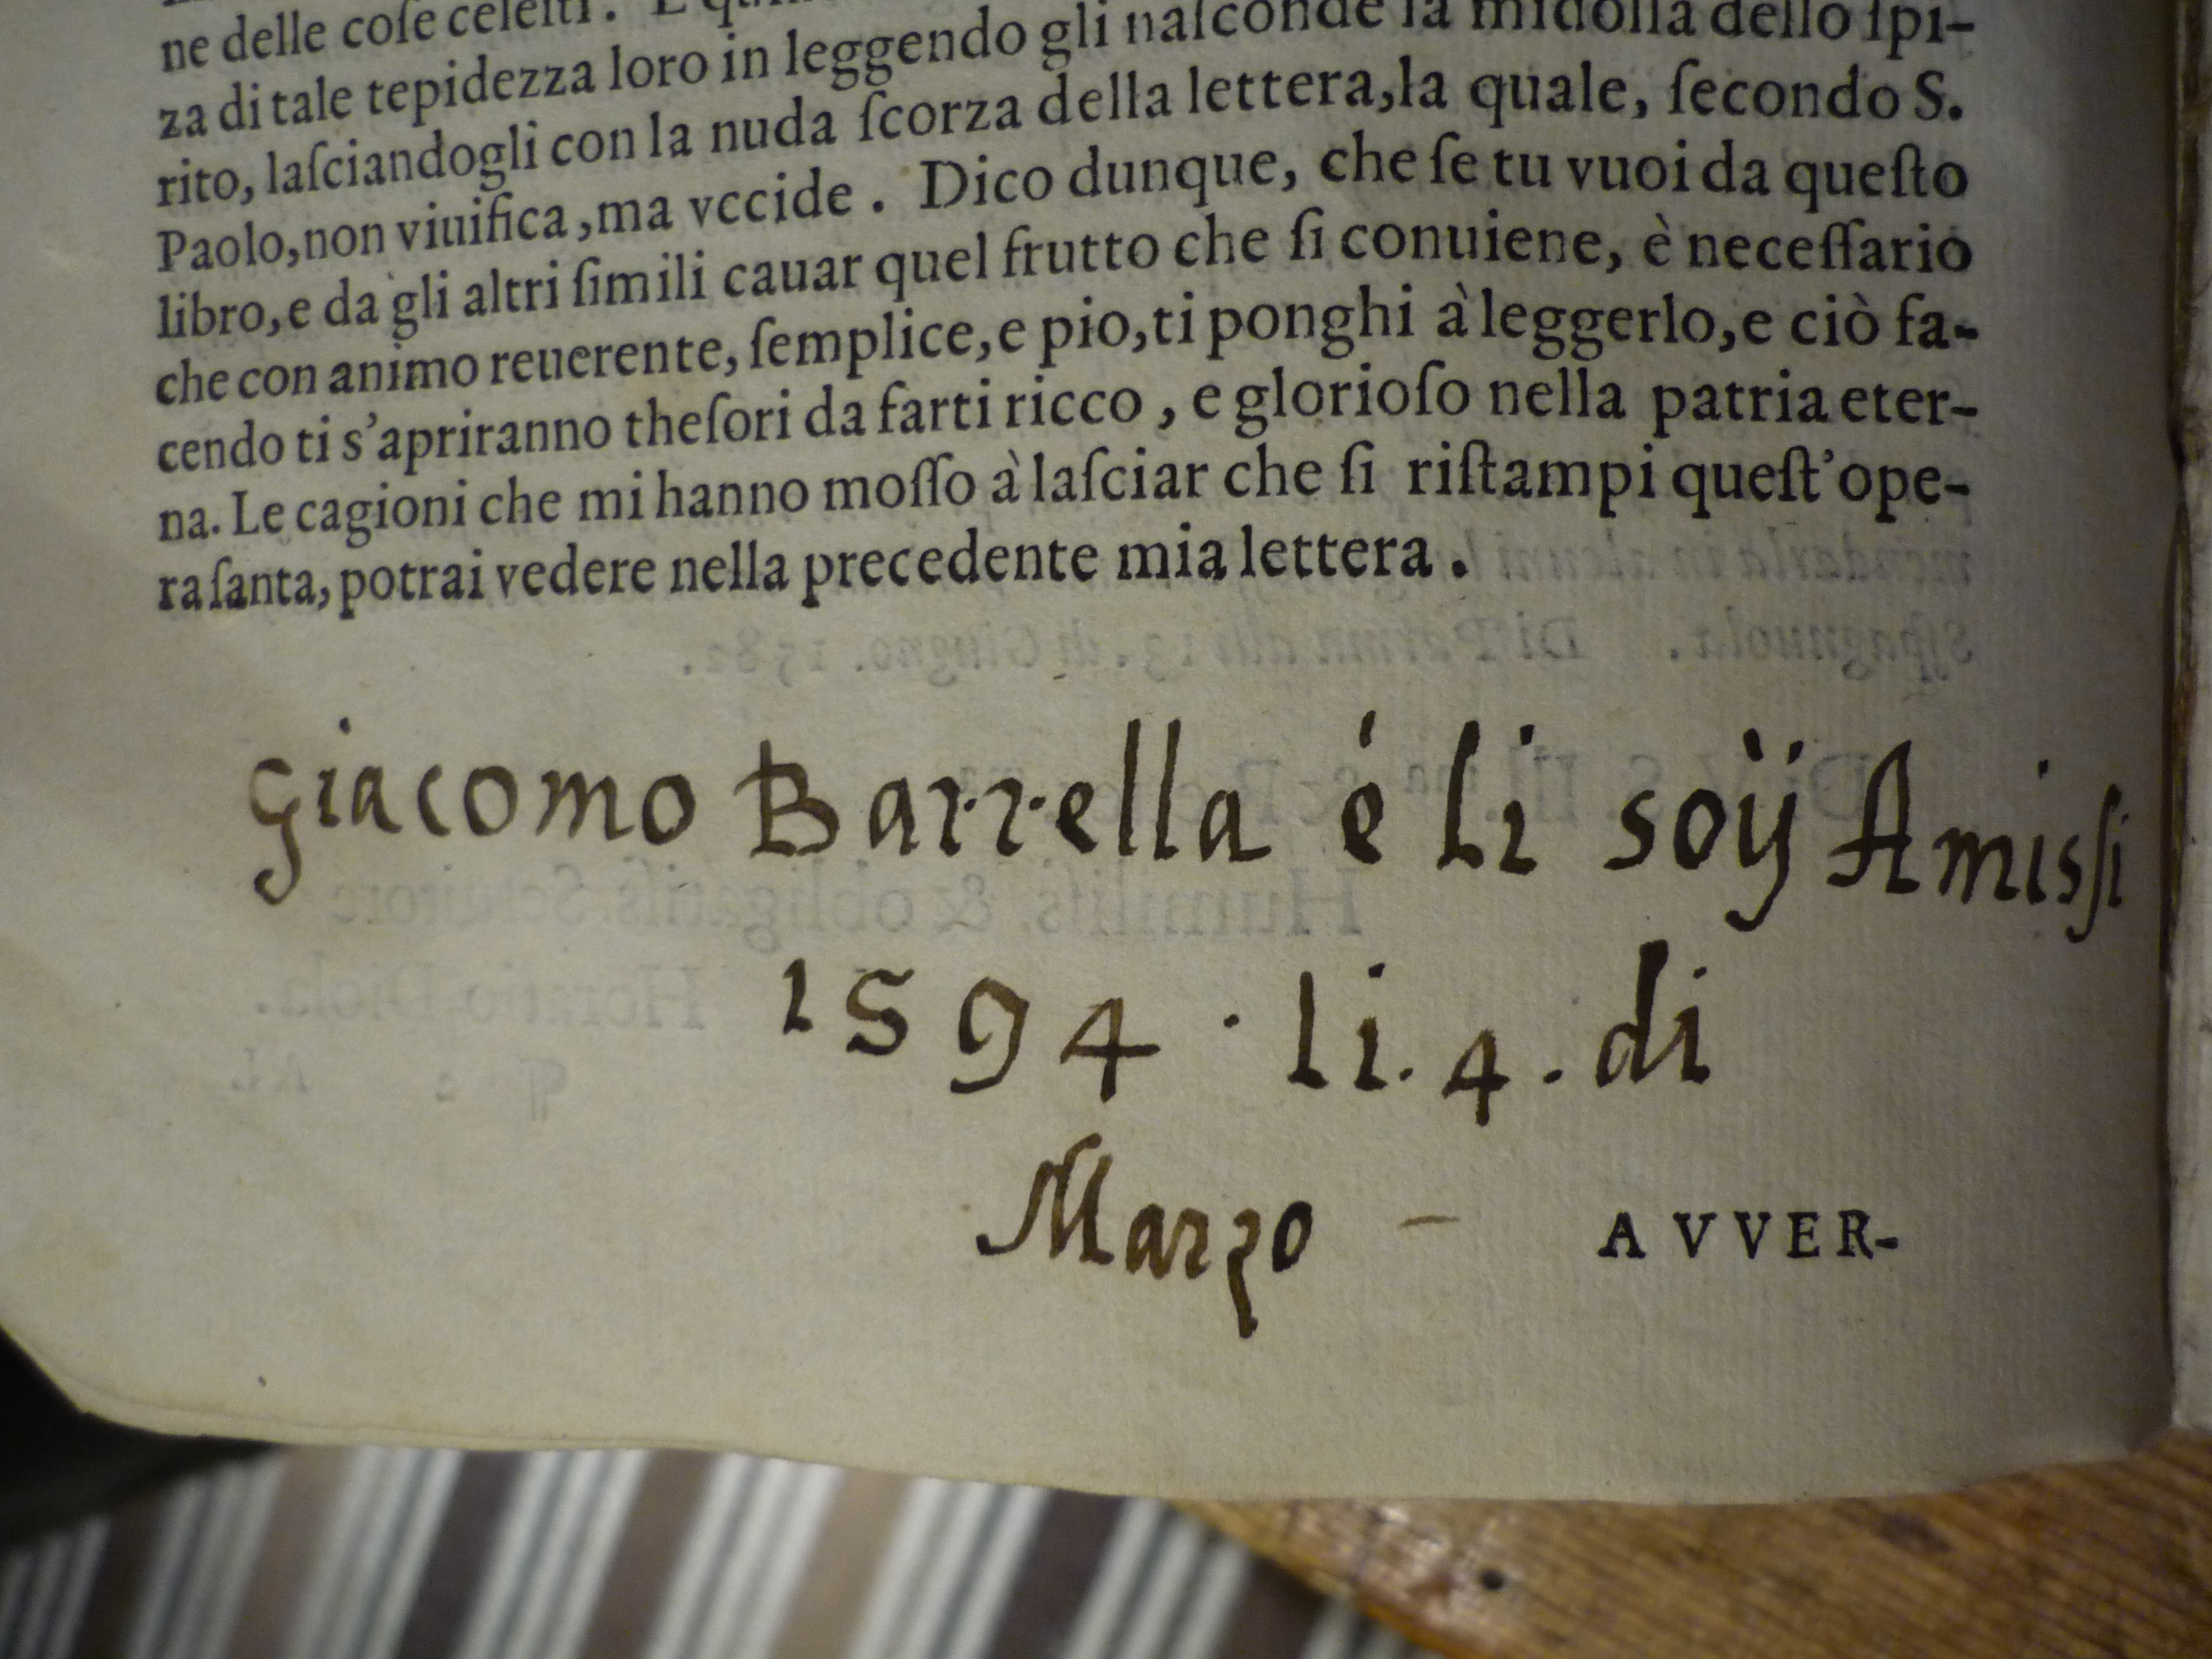 ne delle coſe celeſti.
za di tale tepidezza loro in leggendo gli naſconde la midolla dello ſpi-
rito, laſciandogli con la nuda ſcorza della lettera, la quale, ſecondo S.
Paolo, non viuifica, ma vccide. Dico dunque, che ſe tu vuoi da queſto
libro, e da gli altri ſimili cauar quel frutto che ſi conuiene, è neceſſario
che con animo reuerente, ſemplice, e pio, ti ponghi à leggerlo, e ciò fa-
cendo ti s'apriranno theſori da farti ricco, e glorioſo nella patria eter-
na. Le cagioni che mi hanno moſſo à laſciar che ſi riſtampi queſt'ope-
ra ſanta, potrai vedere nella precedente mia lettera.
Giacomo Barrella é li soÿ Amisſi
1594 · li. 4. di
Marzo –
AVVER-